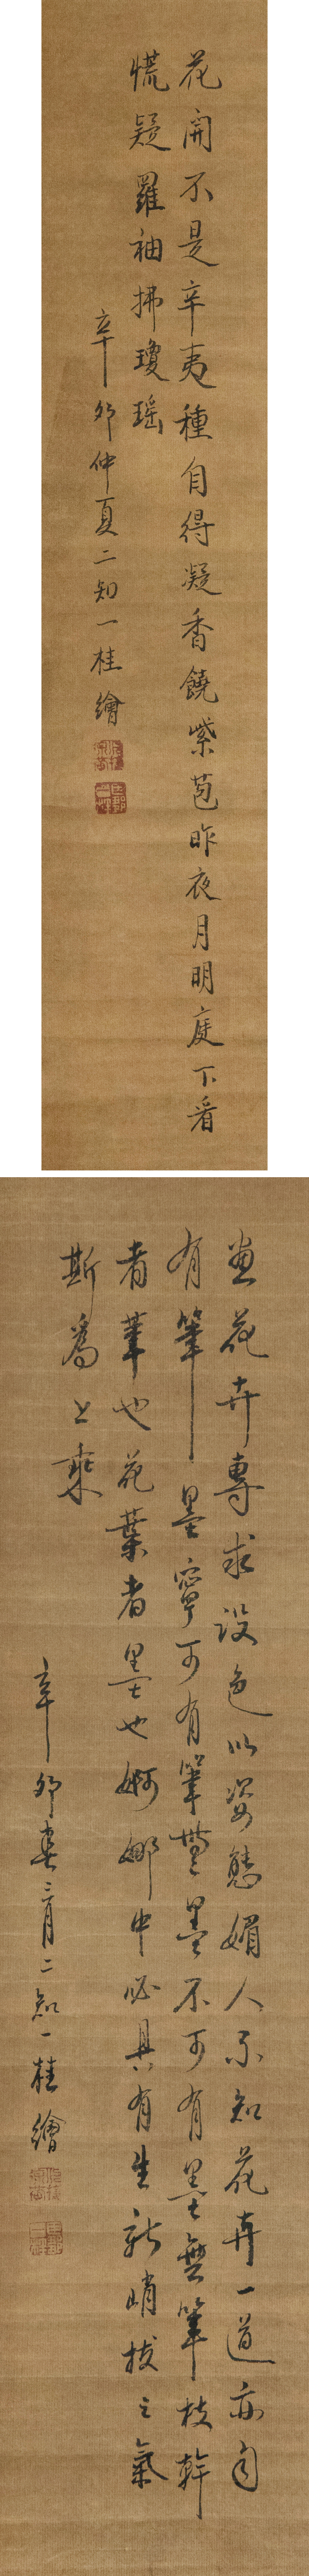 花開不是辛夷種自得凝香饒紫苞昨夜月明庭下看
慌疑羅袖拂瓊瑶
辛夘仲夏二知一桂繪
畫花卉專求設色以姿態媚人不知花卉一道亦自
有筆墨寧可有筆無墨不可有墨無筆枝幹
者筆也花葉者墨也婀娜中必具有生新峭拔之氣
斯為上乘
辛夘春三月二知一桂繪